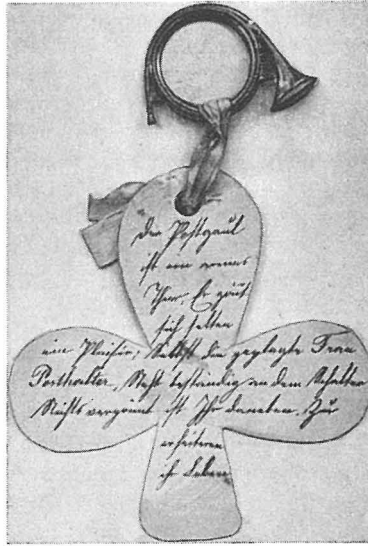 Der Postgaul
ist ein armes
Thier, Er gönnt
sich selten
ein Plaisir; Selbst die geplagte Frau
Posthalter, Steht beständig an dem Schalter
Nichts vergönnt ist Ihr daneben, Zur
erheitern
ihr Leben